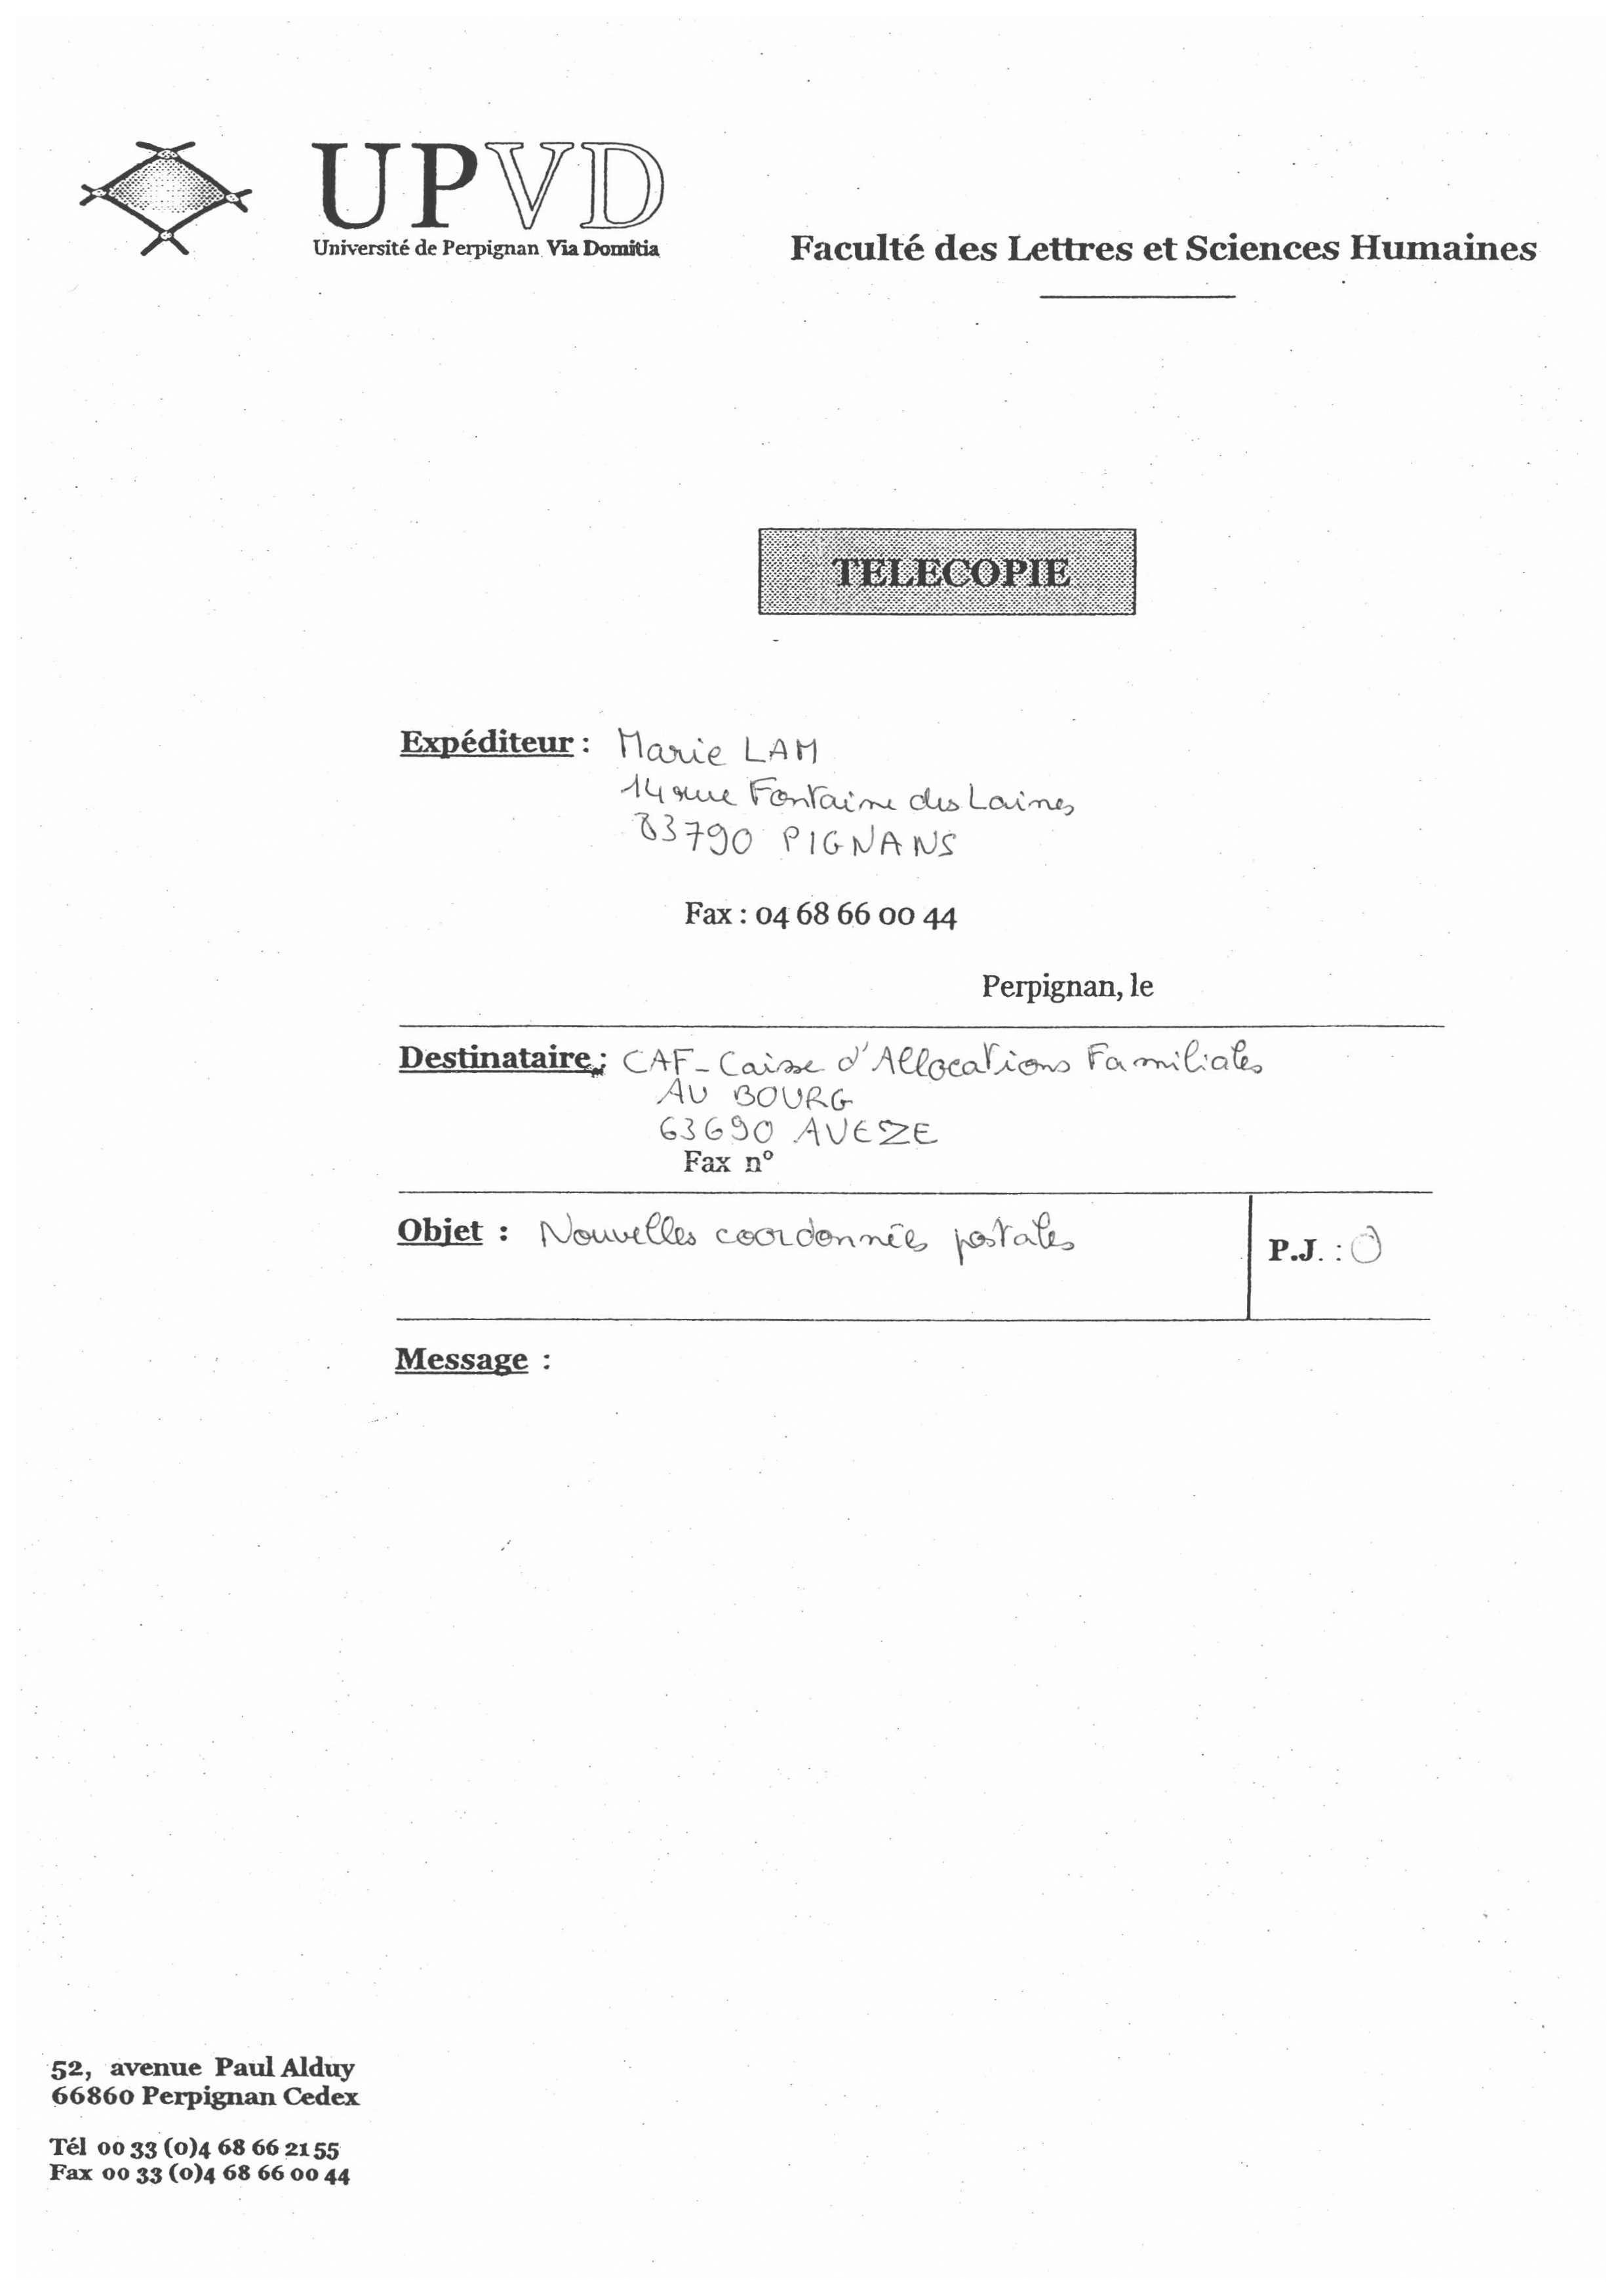 UPVD
Université de Perpignan Via Domitia
Faculté des Lettres et Sciences Humaines
TELECOPIE
Expéditeur : Marie LAM
14 rue Fontaine des Laines
83790 PIGNANS
Fax : 04 68 66 00 44
Perpignan, le
Destinataire : CAF - Caisse d'Allocations Familiales
AU BOURG
63690 AVEZE
Fax n°
Objet : Nouvelles coordonnées postales
P.J. : 0
Message :
52, avenue Paul Alduy
66860 Perpignan Cedex
Tél 00 33 (0)4 68 66 21 55
Fax 00 33 (0)4 68 66 00 44